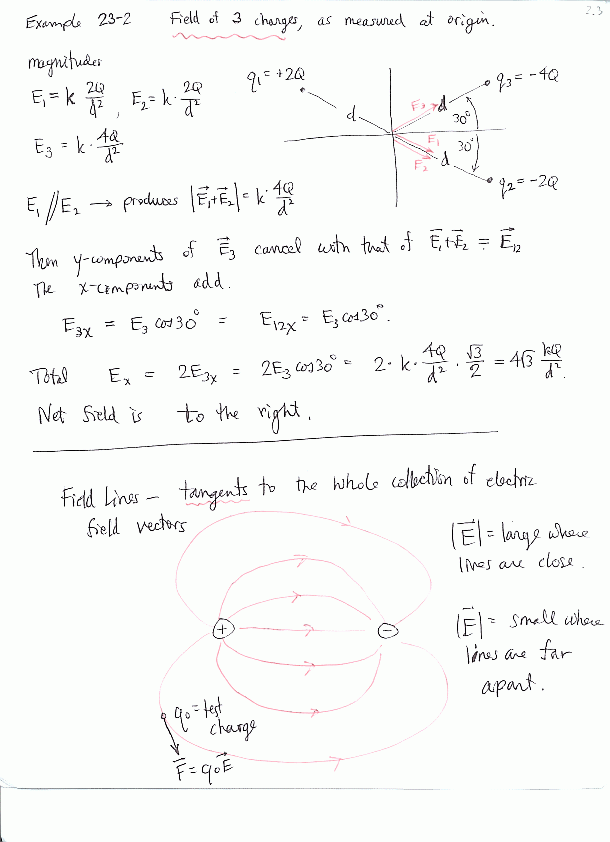 2.3
Example 23-2 Field of 3 charges, as measured at origin.
magnitudes
E₁ = k 2Q/d², E₂ = k · 2Q/d²
E₃ = k · 4Q/d²
q₁ = +2Q
d
q₃ = -4Q
E₃
d
30°
E₁
30°
E₂
d
q₂ = -2Q
E₁ // E₂ → produces |E⃗₁+E⃗₂| = k · 4Q/d²
Then y-components of E⃗₃ cancel with that of E⃗₁+E⃗₂ = E⃗₁₂
The x-components add.
E₃ₓ = E₃ cos30° = E₁₂ₓ = E₃ cos30°.
Total Eₓ = 2E₃ₓ = 2E₃ cos30° = 2 · k · 4Q/d² · √3/2 = 4√3 kQ/d².
Net field is to the right.
Field Lines – tangents to the whole collection of electric
field vectors
|E⃗| = large where
lines are close.
+
−
|E⃗| = small where
lines are far
apart.
q₀ = test
charge
F⃗ = q₀E⃗